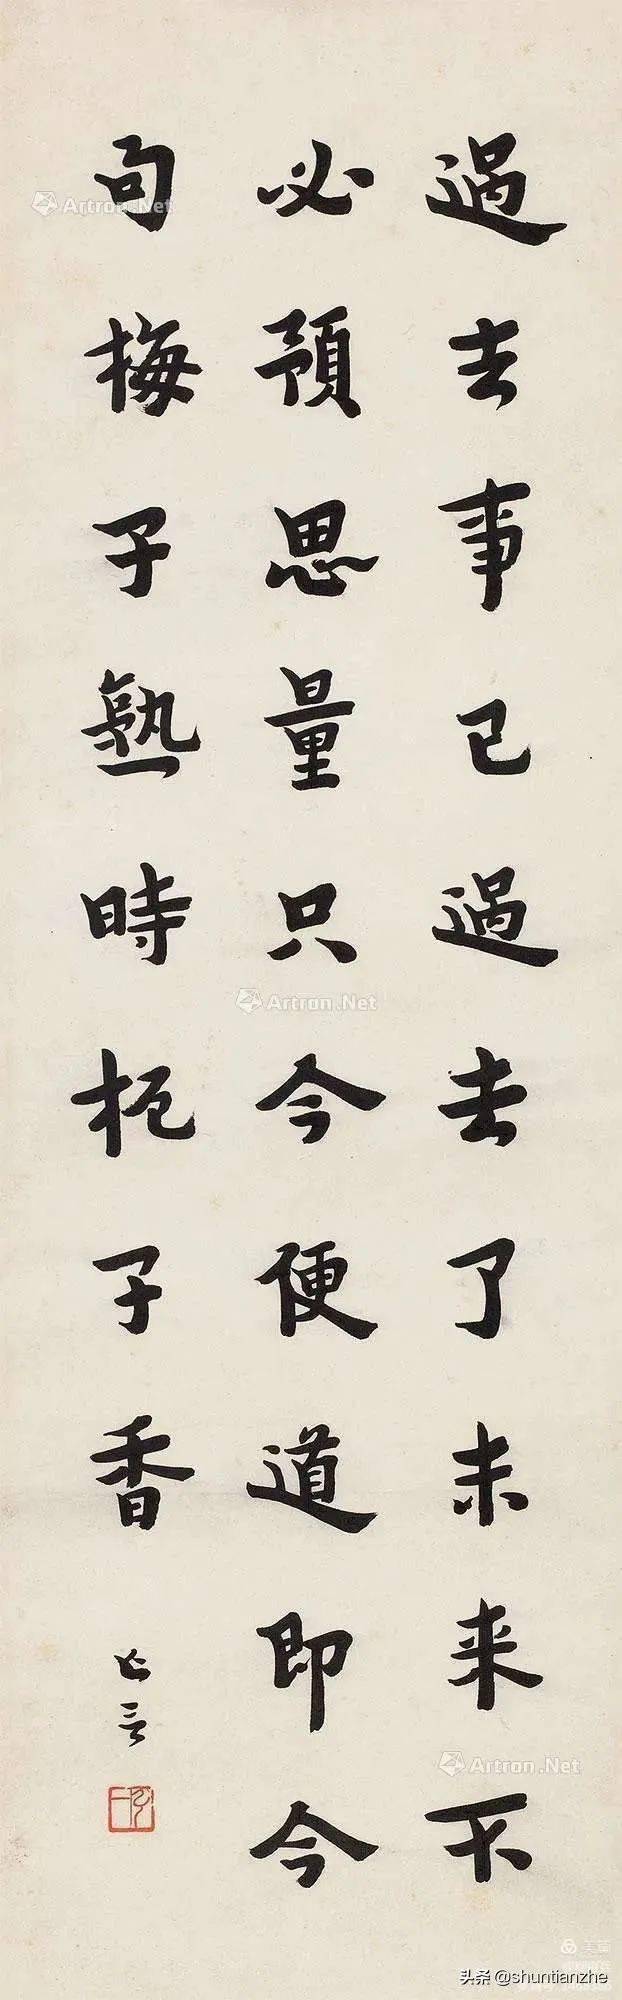 過去事已過去了未来不
必預思量只今便道即今
句梅子熟時栀子香
亡言
Artron.Net
Artron.Net
Artron.Net
美篇
头条 @shuntianzhe